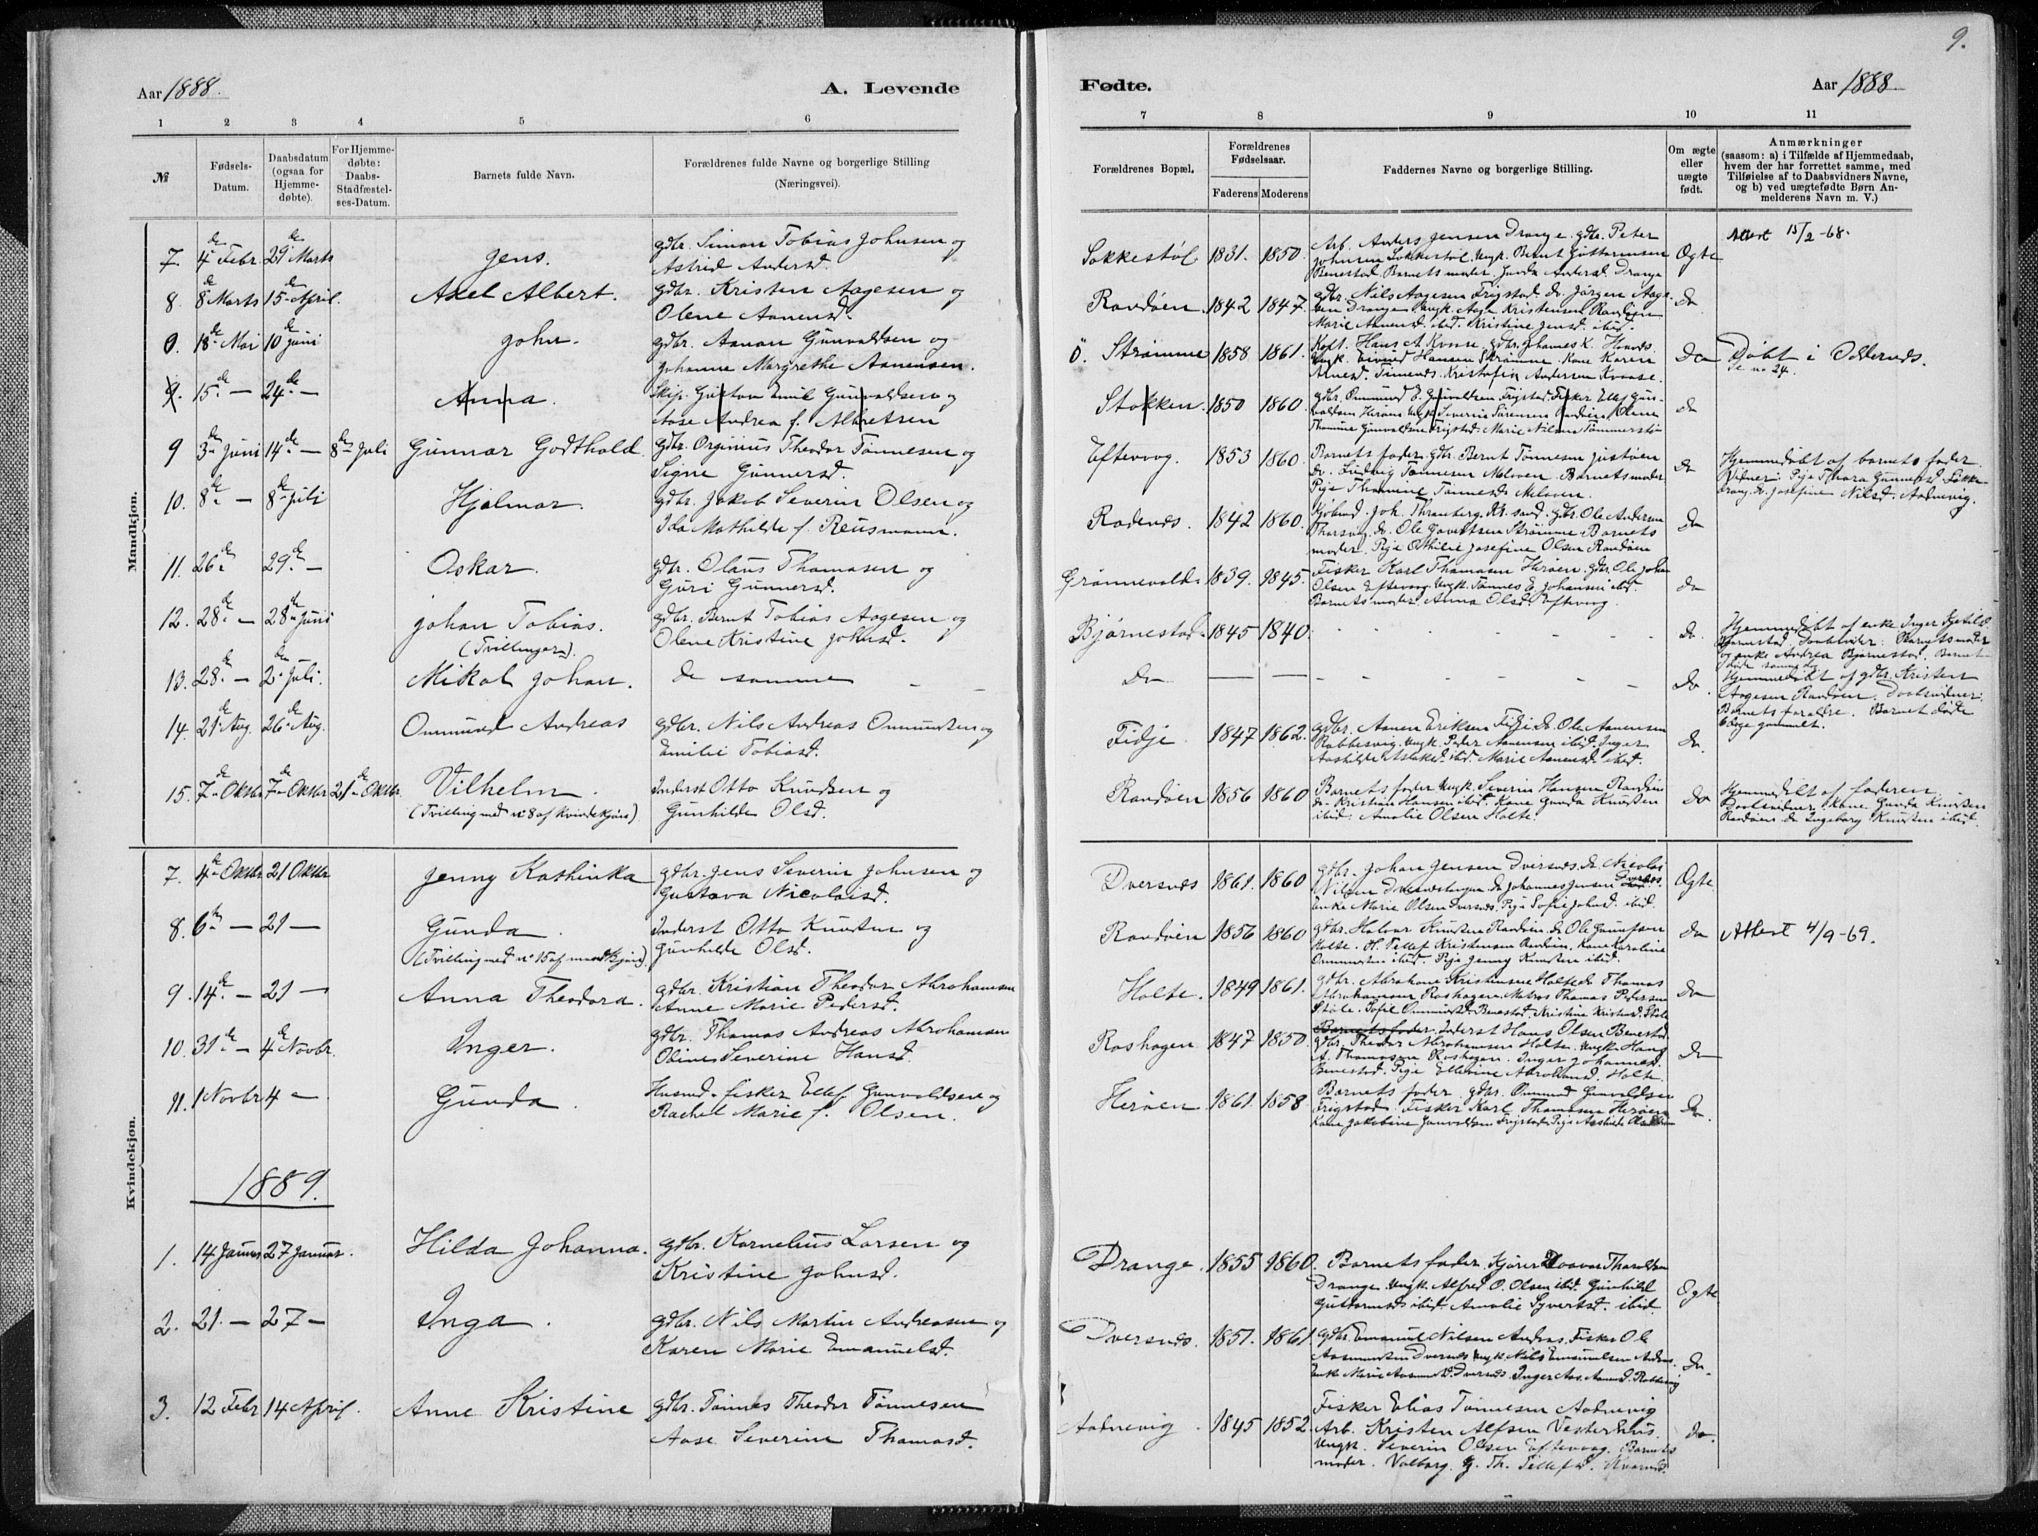 9.
Aar 1888.
A. Levende
Fødte.
Aar 1888
1 2 3 4 5 6
7 8 9 10 11
№
Fødsels-
Datum.
Daabsdatum
(ogsaa for
Hjemme-
døbte).
For Hjemme-
døbte:
Daabs-
Stadfæstel-
ses-Datum.
Barnets fulde Navn.
Forældrenes fulde Navne og borgerlige Stilling
(Næringsvei).
Forældrenes Bopæl.
Forældrenes
Fødselsaar.
Faderens Moderens
Faddernes Navne og borgerlige Stilling.
Om ægte
eller
uægte
født.
Anmærkninger
(saasom: a) i Tilfælde af Hjemmedaab,
hvem der har forrettet samme, med
Tilføielse af to Daabsvidners Navne,
og b) ved uægtefødte Børn An-
melderens Navn m. V.)
Mandkjøn.
7. 4de Febr 29de Marts Jens. gdbr. Simon Tobias Johnsen og
Astrid Andersd.
Sokkestøl 1831. 1850. Arb. Anders Jensen Drange. gdbr. Peter
Johnsen Sokkestøl. Ungk. Bernt Guttormsen
Benestad. Barnets moder. Gunda Andersd. Drange
Ægte
Attest 15/2-68.
8. 8de Marts 15de April. Axel Albert. gdbr. Kristen Aagesen og
Olene Aanensd.
Randøen 1842 1847. gdbr. Nils Aagesen Frigstad. do. Jørgen Aage-
sen Drange. Ungk. Aage Kristensen Randøen
Marie Aanensd. ibid. Kristine Jensd. ibid.
do
0. 18de Mai 10de Juni John. gdbr. Aanon Gunvaldsen og
Johanne Margrethe Aanensen.
Ø. Strømme 1858 1861. Kapt. Hans A. Kvaase. gdbr. Johannes K.
Ungk. Eivind Hansen Strømme. Kone Karen
Kristofin Andersen Kvaase.
do
Døbt i Oddernes.
Se no 24.
9. 15de — 24de — Anna. Skip. Gustav Emil Gunvaldsen og
Aase Andrea f. Albretsen
Stokken. 1850 1860. gdbr. Ommund E. Gunvaldsen Frigstad. Fisker Ellef Gun-
valdsen Herøen. Ungk. Severin Sørensen Randøen. Olene
Thomine Gunvaldsen Frigstad. Marie Nilsen Tømmerstø
do
9 3de Juni 14de — 8de Juli Gunnar Godthold. gdbr. Orginius Theodor Tønnesen og
Signe Gunnersd.
Eftevog. 1853 1860. Barnets fader. gdbr. Bernt Tønnesen Justøen
do. Ludvig Tønnesen Meløen. Barnets moder
Pige Thomine Tønnesd. Meløen.
do
Hjemmedøbt af barnets fader.
Vidner: Pige Thora Gunnersd. Lukke-
vang. do. Josefine Nilsd. Aadnevig.
10. 8de — 8de Juli Hjalmar. gdbr. Jakob Severin Olsen og
Ida Mathilde f. Reusmann.
Rodenes. 1842 1860. Joh. Thranberg Kr.sand. gdbr. Ole Andersen
Tharsvig. do. Ole Gavertsen Strømme Barnets
moder. Pige Othilie Josefine Olsen Randøen
do
11. 26de 29de — Oskar. gdbr. Olaus Thomasen og
Guri Gunnersd.
Grønnevold. 1839. 1845. Fisker Karl Thomasen Herøen. gdbr. Ole Johan
Olsen Eftevog. Ungk. Tønnes E. Johansen ibid.
Barnets moder. Anna Olsd. Eftevog.
do
12. 28de — 28de Juni Johan Tobias.
(Tvillinger).
gdbr. Bernt Tobias Aagesen og
Olene Kristine Johnsd.
Bjørnestad. 1845 1840. - - - - - - do.
Hjemmedøbt af enke Inger Kjetild.
Bjørnestad. Daabsvidner: Barnets moder
og enke Andrea Bjørnestad. Barnet
døde samme dag
13. 28de — 2de Juli. Mikal Johan. de samme - -
do — — - - - - - - do.
Hjemmedøbt af gdbr. Kristen
Aagesen Randøen. Daabsvidner:
Barnets forældre. Barnet døde
6 dage gammelt.
14. 21de Aug. 26de Aug. Ommund Andreas gdbr. Nils Andreas Ommundsen og
Emilie Tobiasd.
Fidje 1847 1862. gdbr. Aanen Eriksen Fidje. do. Ole Aanensen
Rabbesvig. Ungk. Peder Aanensen ibid. Inger
Aashilde Aslaksd. ibid. Marie Aanensd. ibid.
do.
15. 7de Oktbr 7de Oktbr 21de Oktbr. Vilhelm.
(Tvilling med nr 8 af kvindekjøn).
Inderst Otto Knudsen og
Gunhilde Olsd.
Randøen 1856 1860 Barnets fader. Ungk. Severin Hansen Randøen
do. Kristian Hansen ibid. Kone Gunda Knudsen
ibid. Amalie Olsen Holte.
do
Hjemmedøbt af faderen.
Daabsvidner: Kone Gunda Knudsen
Randøen do Ingeborg Knudsen ibid.
Kvindekjøn.
7. 4de Oktbr 21 Oktbr Jenny Kathinka gdbr. Jens Severin Johnsen og
Gustava Nicolaisd.
Dversnes 1861. 1860 gdbr. Johan Jensen Dversnes do Nicolai
Nilsen Dversnestangen. do. Johannes Jensen Dversnes
Enke Marie Olsen Dversnes. Pige Sofie Johnsd. ibid.
Ægte
8. 6te — 21 — Gunda.
(Tvilling med nr 15 af mandkjøn).
Inderst Otto Knudsen og
Gunhilde Olsd.
Randøen 1856 1860 gdbr. Halvor Knudsen Randøen. do Ole Gunufsen
Holte. H. Tellef Kristensen Randøen. Kone Karoline
Ommundsen ibid. Pige Jenny Knudsen ibid.
do
Attest 4/9-69.
9. 14de — 21 — Anna Theodora. gdbr. Kristian Theodor Abrahamsen
Anne Marie Pedersd.
Holte. 1849 1861. gdbr. Abraham Kristensen Holte do Thomas
Abrahamsen Roshagen. Matros Thomas Pedersen
Støle. Sofie Ommundsd. Benestad. Kristine Kristensd. Støle
do
10. 31de — 4de Novbr. Inger. gdbr. Thomas Andreas Abrahamsen
Oline Severine Hansd.
Roshagen 1847 1850. Barnets fader. Inderst Hans Olsen Benestad.
gdbr. Theodor Abrahamsen Holte. Ungk. Hans
A. Thomassen Roshagen. Inger Johannesd.
Benestad. Pige Elleine Abrahamsd. Holte.
do
11. 1 Novbr 4 — Gunda. Husmd. fisker Ellef Gunvaldsen og
Rachel Marie f. Olsen.
Herøen. 1861. 1858 Barnets fader gdbr. Ommund Gunvaldsen
Frigstad. Fisker Karl Thomasen Herøen
Kone Jakobine Gunvaldsen Frigstad. Pige Aashilde Olsd.
do.
1889.
1. 14 Januar 27 Januar. Hilda Johanna. gdbr. Kornelius Larsen og
Kristine Johnsd.
Drange. 1855 1860. Barnets fader. Tharaldsen
Drange. Ungk. Alfred O. Olsen ibid. Gunhild
Guttormsd. ibid. Amalie Syvertsd. ibid.
Ægte
2. 21. — 27 — Inga. gdbr. Nils Martin Andreasen og
Karen Marie Emanuelsd.
Dversnes. 1857. 1861 gdbr. Emanuel Nilsen Andås. Fisker Ole
Aasmundsen Dversnes. Ungk. Nils Emanuelsen Andås.
Enke Marie Aasmundsd. Dversnes. Inger Aas. Aanensd. Rabbesvig
do.
3. 12 Febr 14 April. Anne Kristine gdbr. Tønnes Theodor Tønnesen
Aase Severine Thomasd.
Aadnevig. 1845 1852. Fisker Elias Tønnesen Aadnevig
Arb. Kristen Alfsen Vesterhus.
Ungk. Severin Olsen Eftevog. Barnets
moder. Valborg G. Th. Tellefsd. Kvarnes.
do.